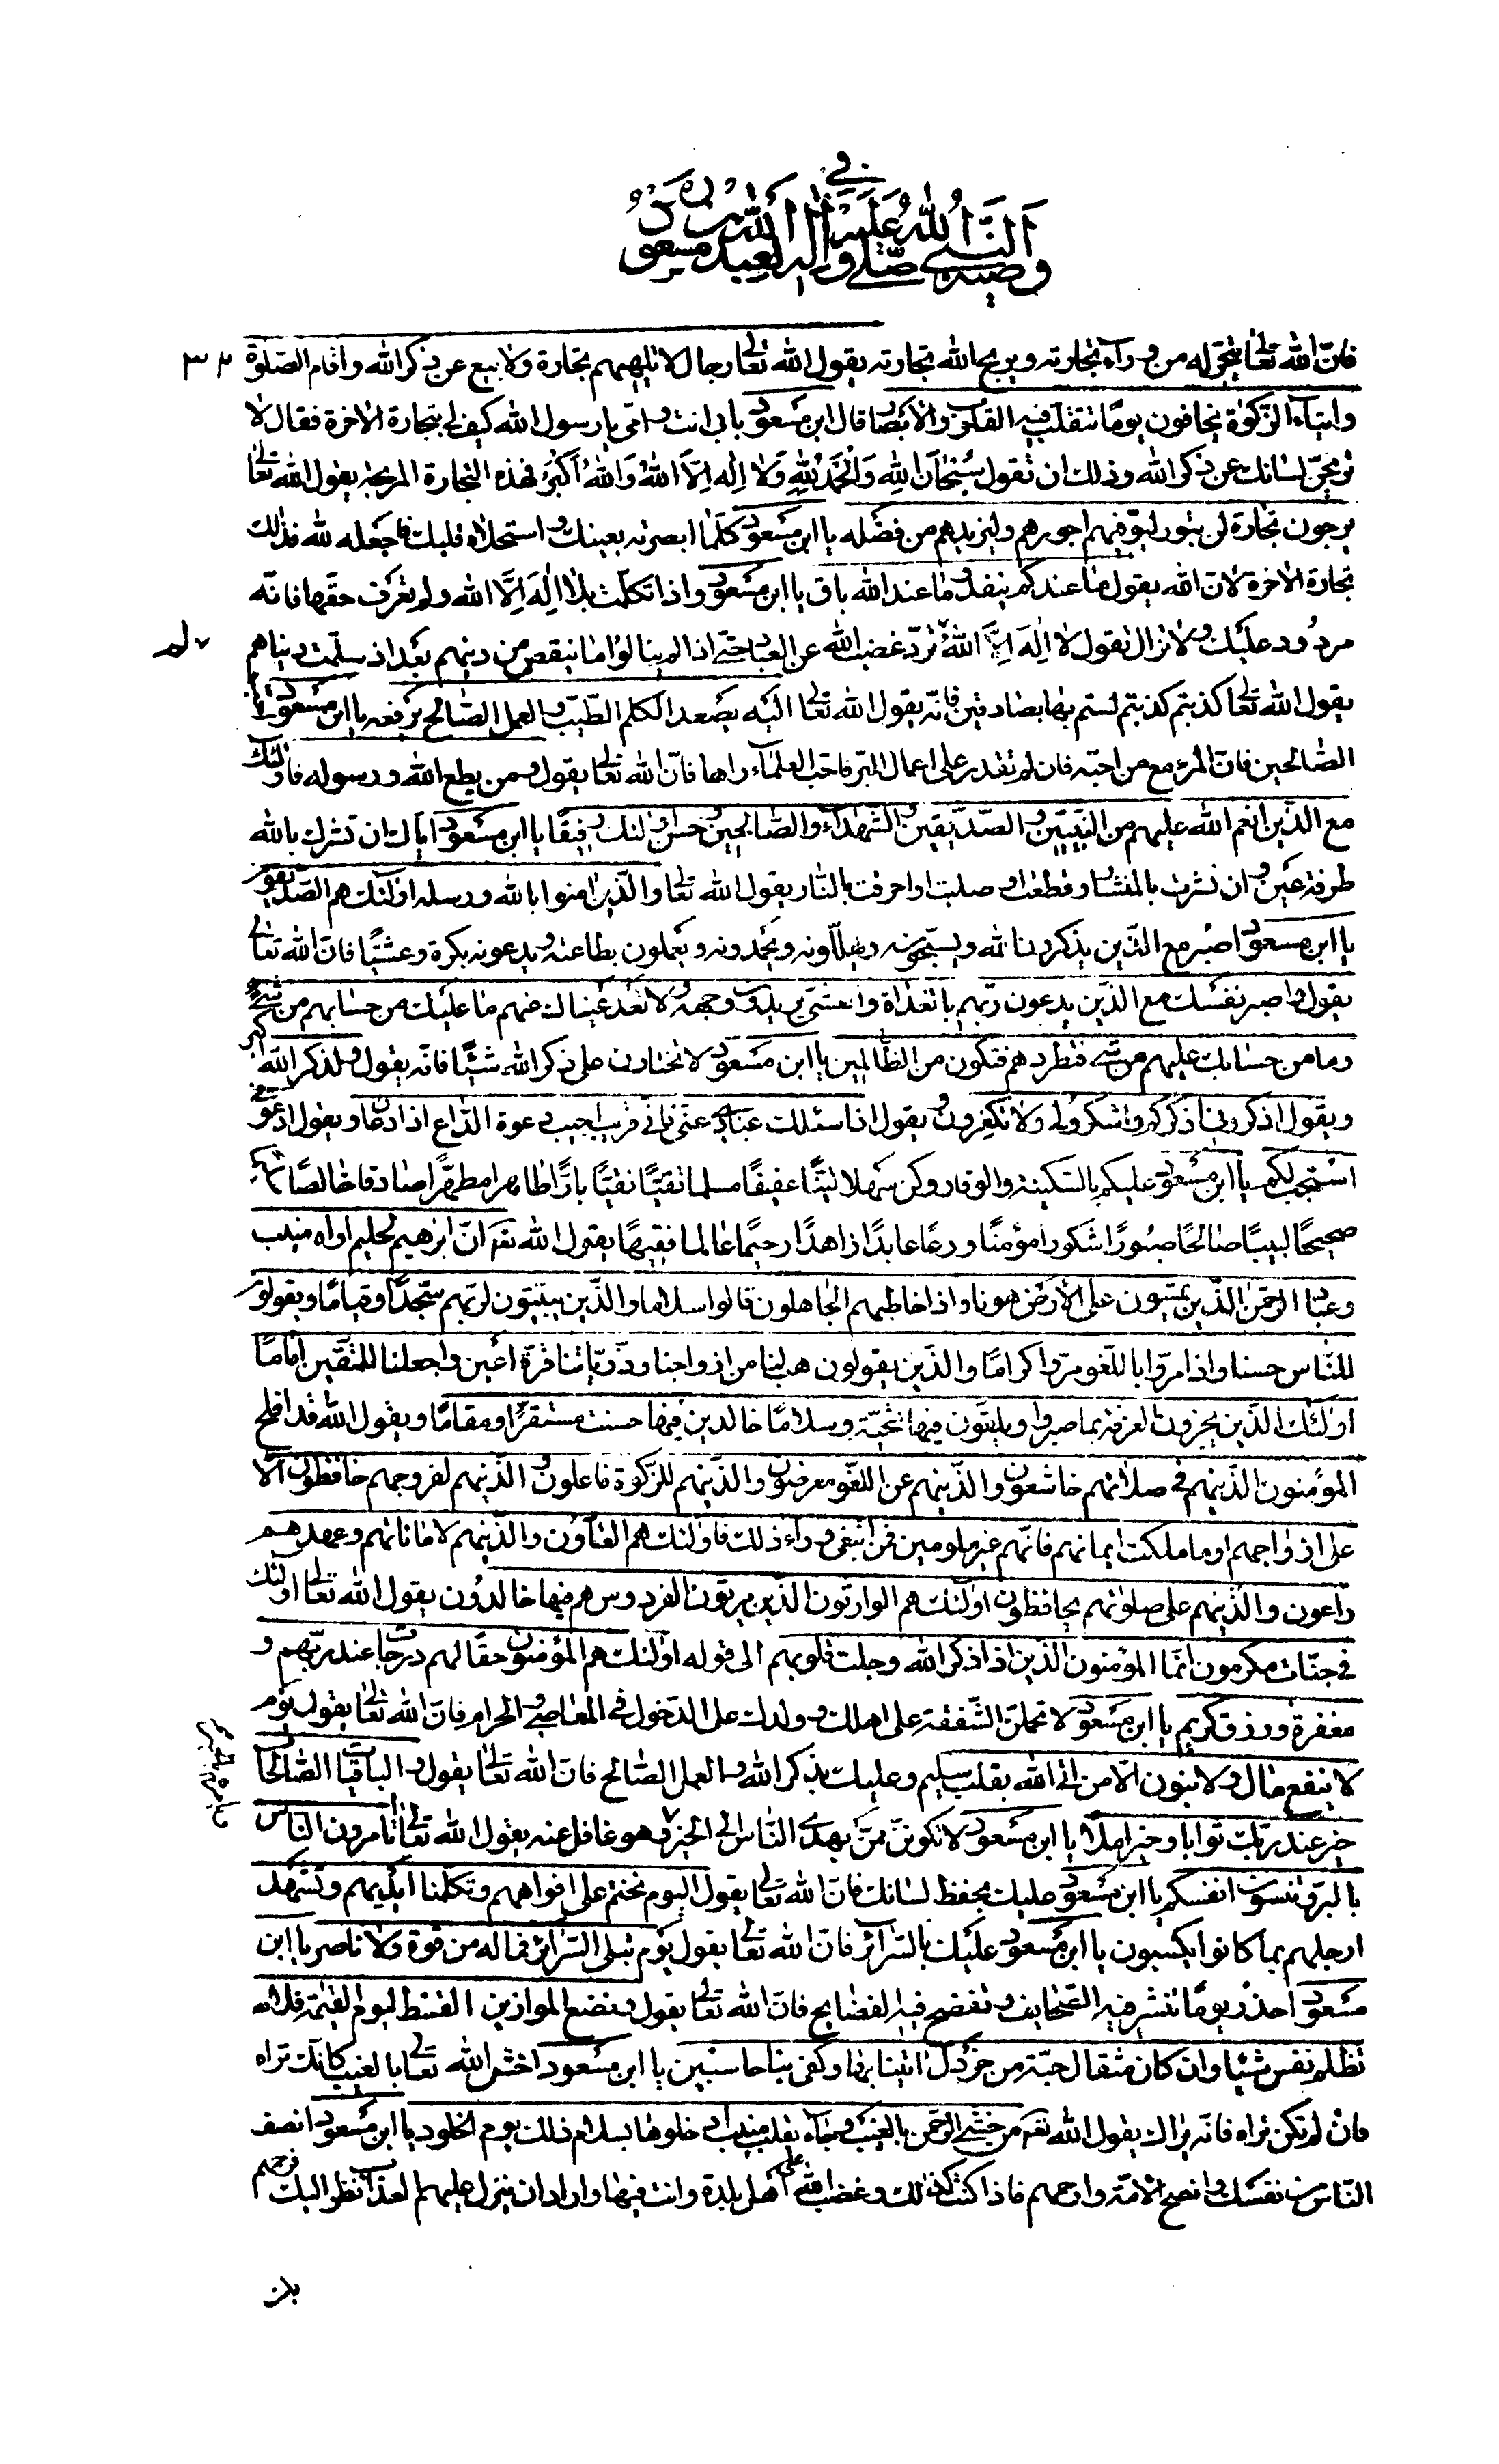 في
وصية النبي صلى الله عليه واله لعبد الله بن مسعود
فانّ الله تعالى يتجر له من وراء تجارته ويربح الله تجارته يقول الله تعالى رجال لا تلهيهم تجارة ولا بيع عن ذكر الله واقام الصّلوة
وايتاء الزّكوة يخافون يومًا تتقلّب فيه القلوب والأبصار قال ابن مسعود بابي انت وامّي يا رسول الله كيف لي بتجارة الاخرة فقال لا
تريحنّ لسانك عن ذكر الله وذلك ان تقول سُبْحَانَ اللهِ وَالْحَمْدُ لِلّٰهِ وَلَا اِلٰهَ اِلَّا اللهُ وَاللهُ اَكْبَرُ فهذه التّجارة المربحة يقول الله تعالى
يرجون تجارة لن تبور ليوفّيهم اجورهم ويزيدهم من فضله يا ابن مسعود كلّما ابصرته بعينك واستحلاه قلبك فاجعله لله فذلك
تجارة الاخرة لانّ الله يقول ما عندكم ينفد وما عند الله باق يا ابن مسعود واذا تكلّمت بلا اِلٰهَ اِلَّا الله ولم تعرف حقّها فانّه
مردود عليك ولا تزال تقول لا اِلٰهَ اِلَّا اللهُ تردّ غضب الله عن العباد حتّى اذا لم ينالوا ما ينقص من دينهم بعد اذ سلمت دنياهم
يقول الله تعالى كذبتم كذبتم لستم بها بصادقين فانّه يقول الله تعالى اليه يصعد الكلم الطّيّب والعمل الصّالح يرفعه يا ابن مسعود
الصّالحين فانّ المرء مع من احبّه فان لم تقدر على اعمال البّر فاحبّ العلماء فانّ الله تعالى يقول ومن يطع الله ورسوله فاولئك
مع الذّين انعم الله عليهم من النّبيّين والصّدّيقين والشّهداء والصّالحين وحسن اولئك رفيقًا يا ابن مسعود ايّاك ان تشرك بالله
طرفة عين وان نشرت بالمنشار او قطعت او صلبت او احرقت بالنّار يقول الله تعالى والّذين امنوا بالله ورسله اولئك هم الصّدّيقون
يا ابن مسعود اصبر مع الذّين يذكرون الله ويسبّحونه ويهلّلونه ويحمدونه ويعملون بطاعته ويدعونه بكرة وعشيًّا فانّ الله تعالى
يقول واصبر نفسك مع الذّين يدعون ربّهم بالغداة والعشيّ يريدون وجهه ولا تعد عيناك عنهم ما عليك من حسابهم من شيء
وما من حسابك عليهم من شيء فتطردهم فتكون من الظّالمين يا ابن مسعود لا تختارنّ على ذكر الله شيئًا فانّه يقول ولذكر الله اكبر
ويقول اذكروني اذكركم واشكروا لي ولا تكفرون ويقول اذا سئلك عبادي عنّي فانّي قريب اجيب دعوة الدّاع اذا دعان ويقول ادعوني
استجب لكم يا ابن مسعود عليكم بالسّكينة والوقار وكن سهلا ليّنًا عفيفًا مسلما تقيًّا نقيًّا بارًّا طاهرا مطهّرًا صادقا خالصًا
صحيحًا لبيبًا صالحًا صبورًا شكورا مؤمنًا ورعًا عابدًا زاهدًا رحيمًا عالما فقيهًا يقول الله تعم انّ ابرهيم لحليم اواه منيب
وعباد الرّحمن الّذين يمشون على الأرض هونا واذا خاطبهم الجاهلون قالوا سلاما والذّين يبيتون لربّهم سجّدًا وقيامًا ويقولون
للنّاس حسنا واذا مرّوا باللّغو مرّوا كرامًا والذّين يقولون هب لنا من ازواجنا وذرّيّاتنا قرّة اعين واجعلنا للمتّقين إمامًا
اولئك الذّين يجزون الغرفة بما صبروا ويلقّون فيها تحيّة وسلامًا خالدين فيها حسنت مستقرًّا ومقامًا ويقول الله قد افلح
المؤمنون الذّينهم في صلاتهم خاشعون والذّينهم عن اللّغو معرضون والذّينهم للزّكوة فاعلون والذّينهم لفروجهم حافظون الّا
على ازواجهم او ما ملكت ايمانهم فانّهم غير ملومين فمن ابتغى وراء ذلك فاولئك هم العادون والذّينهم لاماناتهم وعهدهم
راعون والذّينهم على صلوتهم يحافظون اولئك هم الوارثون الذّين يرثون الفردوس هم فيها خالدون يقول الله تعالى اولئك
في جنّات مكرمون انّما المؤمنون الذّين اذا ذكر الله وجلت قلوبهم الى قوله اولئك هم المؤمنون حقّا لهم درجات عند ربّهم و
مغفرة ورزق كريم يا ابن مسعود لا تحملنّ الشّفقة على اهلك وولدك على الدّخول في المعاصي والحرام فانّ الله تعالى يقول يوم
لا ينفع مال ولا بنون الّا من اتى الله بقلب سليم وعليك بذكر الله والعمل الصّالح فانّ الله تعالى يقول والباقيات الصّالحات
خير عند ربّك ثوابا وخير املًا يا ابن مسعود لا تكوننّ ممّن يهدي النّاس الى الخير وهو غافل عنه يقول الله تعالى اتامرون النّاس
بالبرّ وتنسون انفسكم يا ابن مسعود عليك بحفظ لسانك فانّ الله تعالى يقول اليوم نختم على افواههم وتكلّمنا ايديهم وتشهد
ارجلهم بما كانوا يكسبون يا ابن مسعود عليك بالسّرائر فانّ الله تعالى يقول يوم تبلى السّرائر فما له من قوّة ولا ناصر يا ابن
مسعود احذر يومًا تنشر فيه الصّحايف وتفضح فيه الفضايح فانّ الله تعالى يقول ونضع الموازين القسط ليوم القيمة فلا
تظلم نفس شيئا وان كان مثقال حبّة من خردل اتينا بها وكفى بنا حاسبين يا ابن مسعود اخش الله تعالى بالغيب كانّك تراه
فان لم تكن تراه فانّه يراك يقول الله تعم من خشي الرّحمن بالغيب وجاء بقلب منيب ادخلوها بسلام ذلك يوم الخلود يا ابن مسعود انصف
النّاس من نفسك وانصح الأمّة وارحمهم فاذا كنت كذلك وغضب الله على اهل بلدة وانت فيها واراد ان ينزل عليهم العذاب نظر اليك فرحمهم
بك